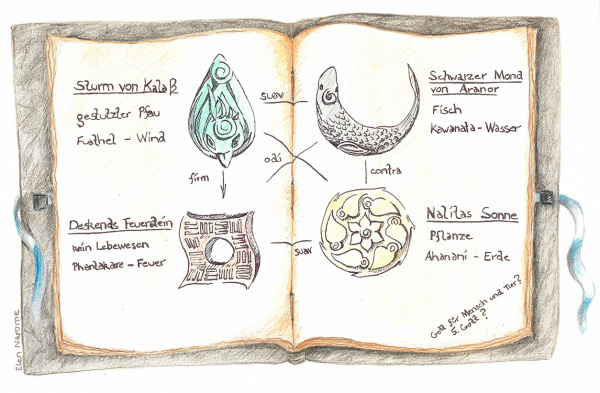 Sturm von Kalaß
gestutzter Pfau
Fathel - Wind
suav
Schwarzer Mond
von Aranor
Fisch
Kawanata - Wasser
odi
firm
contra
Deskends Feuerstein
kein Lebewesen
Phantakare - Feuer
suav
Nalitas Sonne
Pflanze
Ahanani - Erde
Gott für Mensch und Tier?
5. Gott?
Elen Narome